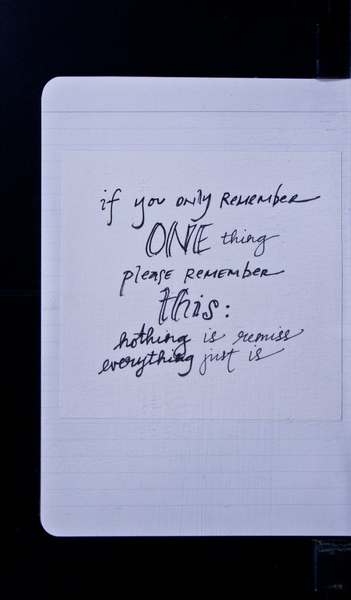 if you only REMEMBER
ONE thing
please REMEMBER
this:
nothing is remiss
everything just is